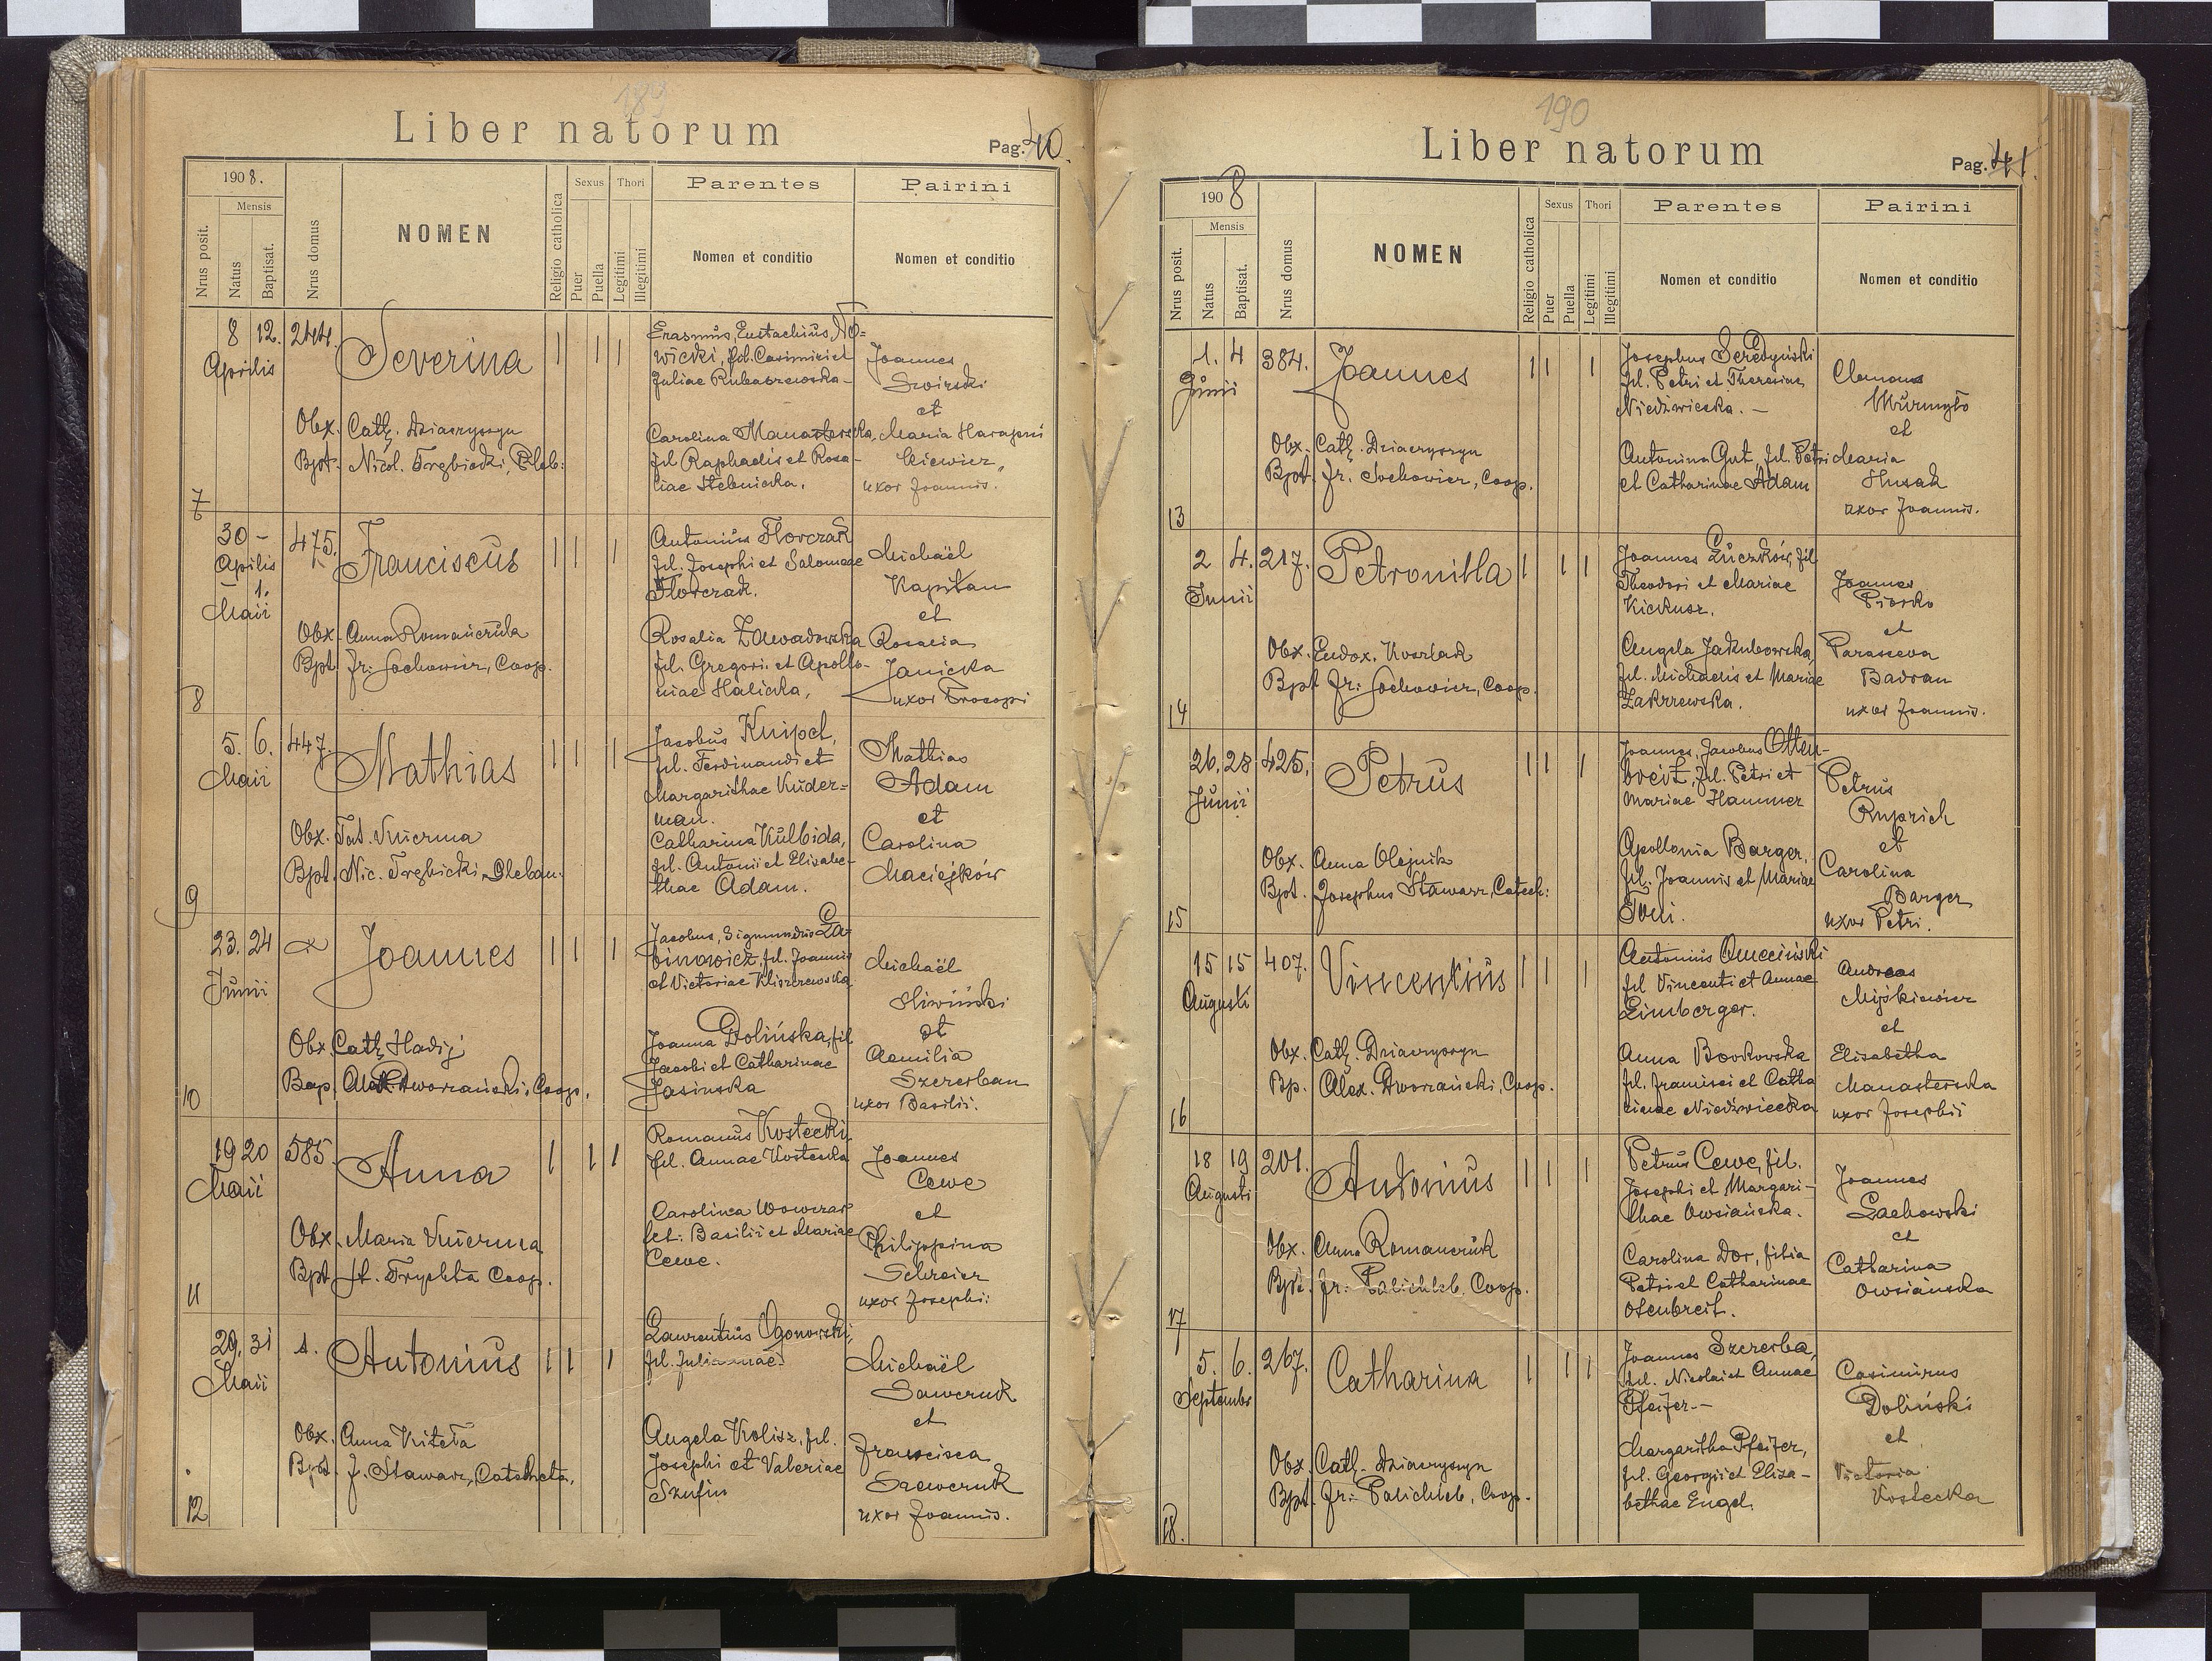 189
Liber natorum
Pag. 40.
1908.
Mensis
Nrus posit.
Natus
Baptisat.
Nrus domus
NOMEN
Religio catholica
Sexus
Puer
Puella
Thori
Legitimi
Illegitimi
Parentes
Nomen et conditio
Pairini
Nomen et conditio
7
8 12. 244.
Aprilis
Severina
Obx. Cath. Dziaczyszyn
Bpt. Nicol. Trzbicki, Pleb:
Erasmus, Eustachius, No-
wicki, fil. Casimiri et
Juliae Rubaszewska -
Carolina Manasterska,
fil Raphaelis et Rosa-
liae Stebnicka.
Joannes
Swirski
et
Maria Harapni
kiewicz,
uxor Joannis.
8
30 - 475.
Aprilis
1.
Maii
Franciscus
Obx. Anna Romańczuk
Bpt Fr: Sochowicz, Coop.
Antonius Florczak
fil. Josephi et Salomeae
Florczak.
Rosalia Zawadowska
fil. Gregori et Apollo-
niae Halicka,
Michaël
Kapitan
et
Rosalia
Janicka
uxor Procopi
9
5. 6. 447.
Maii
Mathias
Obx. Tat. Kucrma
Bpt. Nic. Trzbicki, Pleban.
Jacobus Knipel,
fil. Ferdinandi et
Margarithae Kuder-
man.
Catharina Kulbida,
fil. Antoni et Elisabe-
thae Adam.
Mathias
Adam
et
Carolina
Maciejków
10
23. 24
Junii
Joannes
Obx. Cath. Hadij
Bap. Alex. Dworzański, Coop.
Jacobus, Sigmundus La-
binowicz, fil. Joannis
et Victoriae Kliszczewska
Joanna Dolińska, fil
Jacobi et Catharinae
Jasinska
Michaël
Sliwiński
et
Aemilia
Szczerban
uxor Basilii.
11
19 20 585
Maii
Anna
Obx. Maria Kucrma
Bpt. St. Trychta Coop.
Romanus Kostecki
fil. Annae Kostecka
Carolina Wowczar
fil: Basilii et Mariae
Cewe.
Joannes
Cewe
et
Philippina
Schreier
uxor Josephi:
12
29. 31 1.
Maii
Antonius
Obx. Anna Kiteła
Bpt. J. Stawarz, Catecheta,
Laurentius Ogonowski,
fil. Juliannae.
Angela Kolisz, fil.
Josephi et Valeriae
Szufin
Michaël
Sawczuk
et
Francisca
Szewczuk
uxor Joannis.
190
Liber natorum
Pag. 41.
1908
Mensis
Nrus posit.
Natus
Baptisat.
Nrus domus
NOMEN
Religio catholica
Sexus
Puer
Puella
Thori
Legitimi
Illegitimi
Parentes
Nomen et conditio
Pairini
Nomen et conditio
13
1. 4 384.
Junii
Joannes
Obx. Cath. Dziaczyszyn
Bpt. Fr. Sochowicz, Coop.
Josephus Seredyński
fil. Petri et Theresiae
Niedźwiecka. -
Antonina Gut, fil. Petri
et Catharinae Adam
Clemens
Murmyło
et
Maria
Husak
uxor Joannis.
14
2 4. 217.
Junii
Petronilla
Obx. Eudox. Kozłak
Bpt Fr: Sochowicz, Coop.
Joannes Łuczków, fil
Theodori et Mariae
Kickusz.
Angela Jakubowska,
fil. Michaelis et Mariae
Zakrzewska.
Joannes
Piosko
et
Parasceva
Badran
uxor Joannis.
15
26. 28 425.
Junii
Petrus
Obx. Anna Olejnik
Bpt. Josephus Stawarz, Catech:
Joannes, Jacobus Otten-
breit, fil. Petri et
Mariae Hammer
Apollonia Barger,
fil. Joannis et Mariae
Toni.
Petrus
Ruprich
et
Carolina
Barger
uxor Petri.
16
15 15 407.
Augusti
Vincentius
Obx. Cath. Dziaczyszyn
Bp. Alex. Dworzański, Coop.
Antonius Omeciński
fil Vincenti et Annae
Limberger.
Anna Borkowska
fil. Francisci et Catha
rinae Niedźwiecka
Andreas
Mijskiewicz
et
Elisabetha
Manasterska
uxor Josephii
17
18 19 201.
Augusti
Antonius
Obx. Anna Romanczuk
Bpt. Fr: Palichleb, Coop.
Petrus Cewe, fil.
Josephi et Margari-
thae Owsiańska.
Carolina Dor, filia
Petri et Catharinae
Otenbreit.
Joannes
Lachowski
et
Catharina
Owsiańska
18.
5. 6. 267.
Septembr
Catharina
Obx. Cath. Dziaczyszyn
Bpt. Fr: Palichleb, Coop.
Joannes Szczerba,
fil. Nicolai et Annae
Pfeifer. -
Margaritha Pfeifer,
fil. Georgii et Elisa-
bethae Engel.
Casimirus
Doliński
et
Victoria
Kostecka